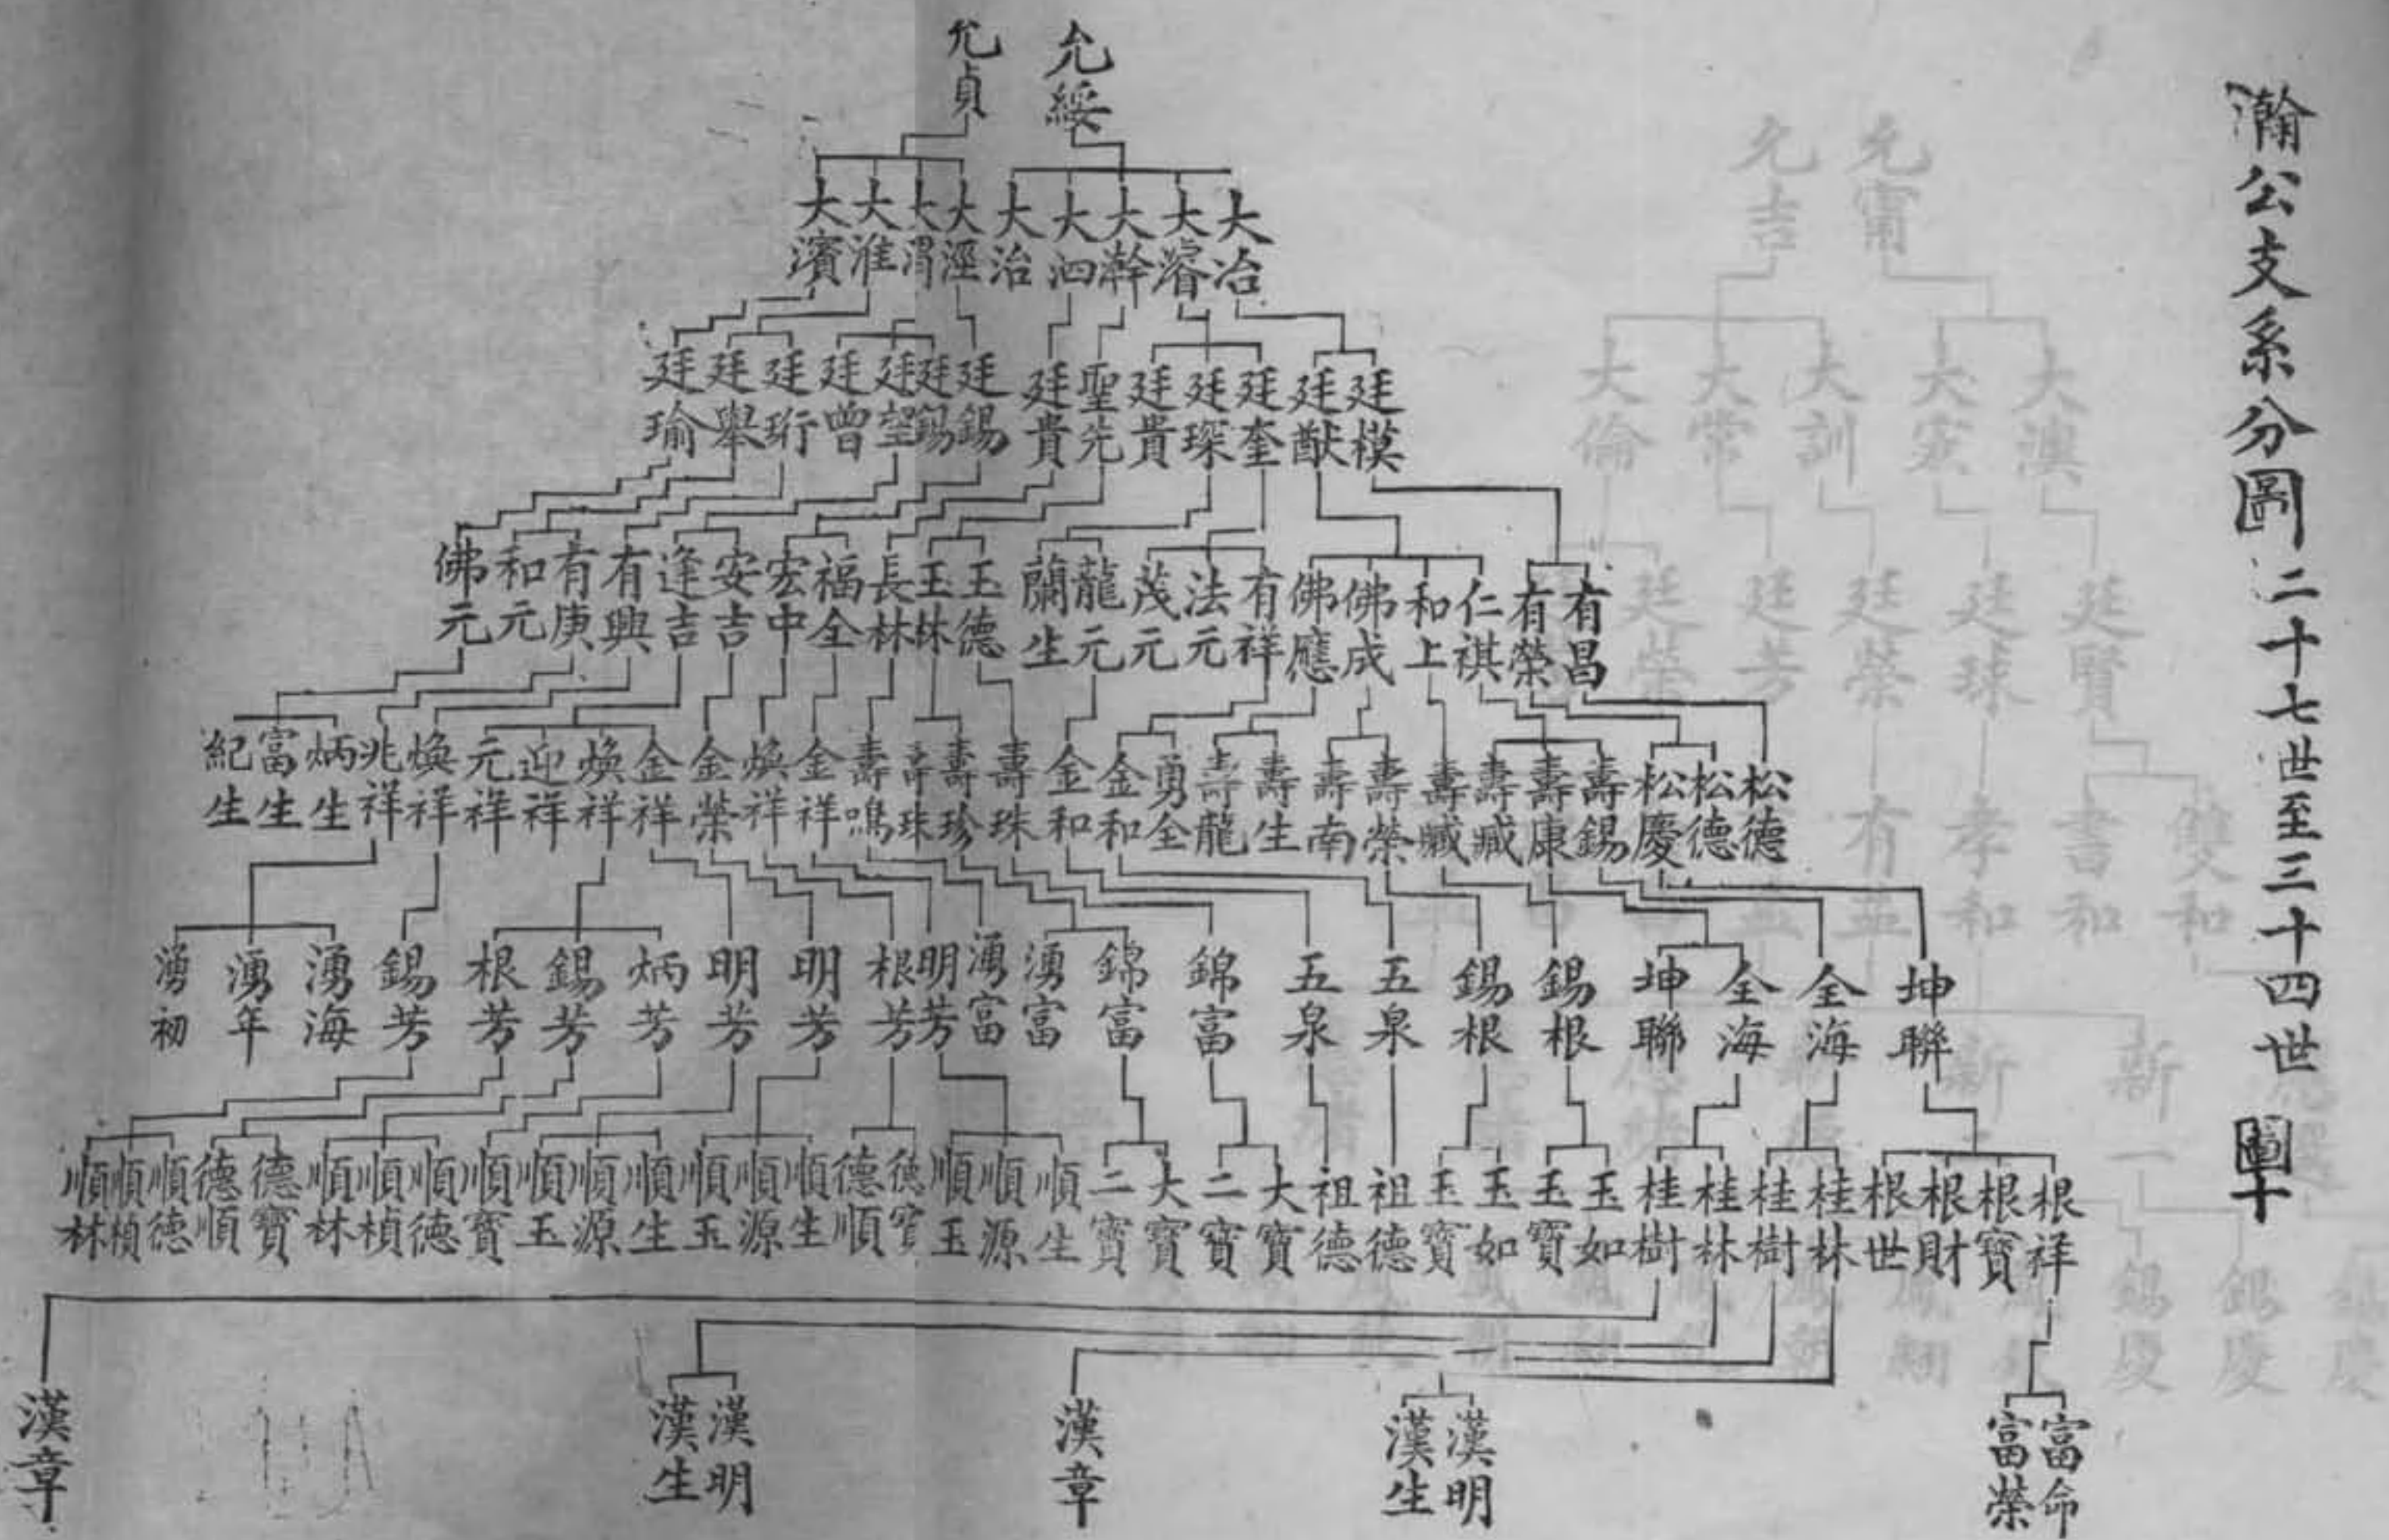 瀚公支系分圖 二十七世至三十四世 圖十
允綏 允貞
大冶 大濬 大澣 大泗 大治 大涇 大渭 大淮 大濱
廷模 廷猷 廷奎 廷琛 廷貴 聖先 廷貴 廷錫 廷錫 廷望 廷曾 廷珩 廷舉 廷瑜
有昌 有榮 仁祺 和上 佛成 佛應 有祥 法元 茂元 龍元 蘭生 玉德 玉林 長林 福全 宏中 安吉 逢吉 有興 有庚 和元 佛元
松德 松德 松慶 壽錫 壽康 壽臧 壽臧 壽榮 壽南 壽生 壽龍 勇全 金和 金和 壽珠 壽珍 壽珠 壽鳴 金祥 煥祥 金榮 金祥 煥祥 迎祥 元祥 煥祥 兆祥 炳生 富生 紀生
坤聯 全海 全海 坤聯 錫根 錫根 五泉 五泉 錦富 錦富 湧富 湧富 明芳 根芳 明芳 明芳 炳芳 錫芳 根芳 錫芳 湧海 湧年 湧初
根祥 根寶 根財 根世 桂林 桂樹 桂林 桂樹 玉如 玉寶 玉如 玉寶 祖德 祖德 大寶 二寶 大寶 二寶 順生 順源 順玉 德寶 德順 順生 順源 順玉 順生 順源 順玉 順寶 順德 順楨 順林 德寶 德順 順德 順楨 順林
富命 富榮 漢明 漢生 漢章 漢明 漢生 漢章